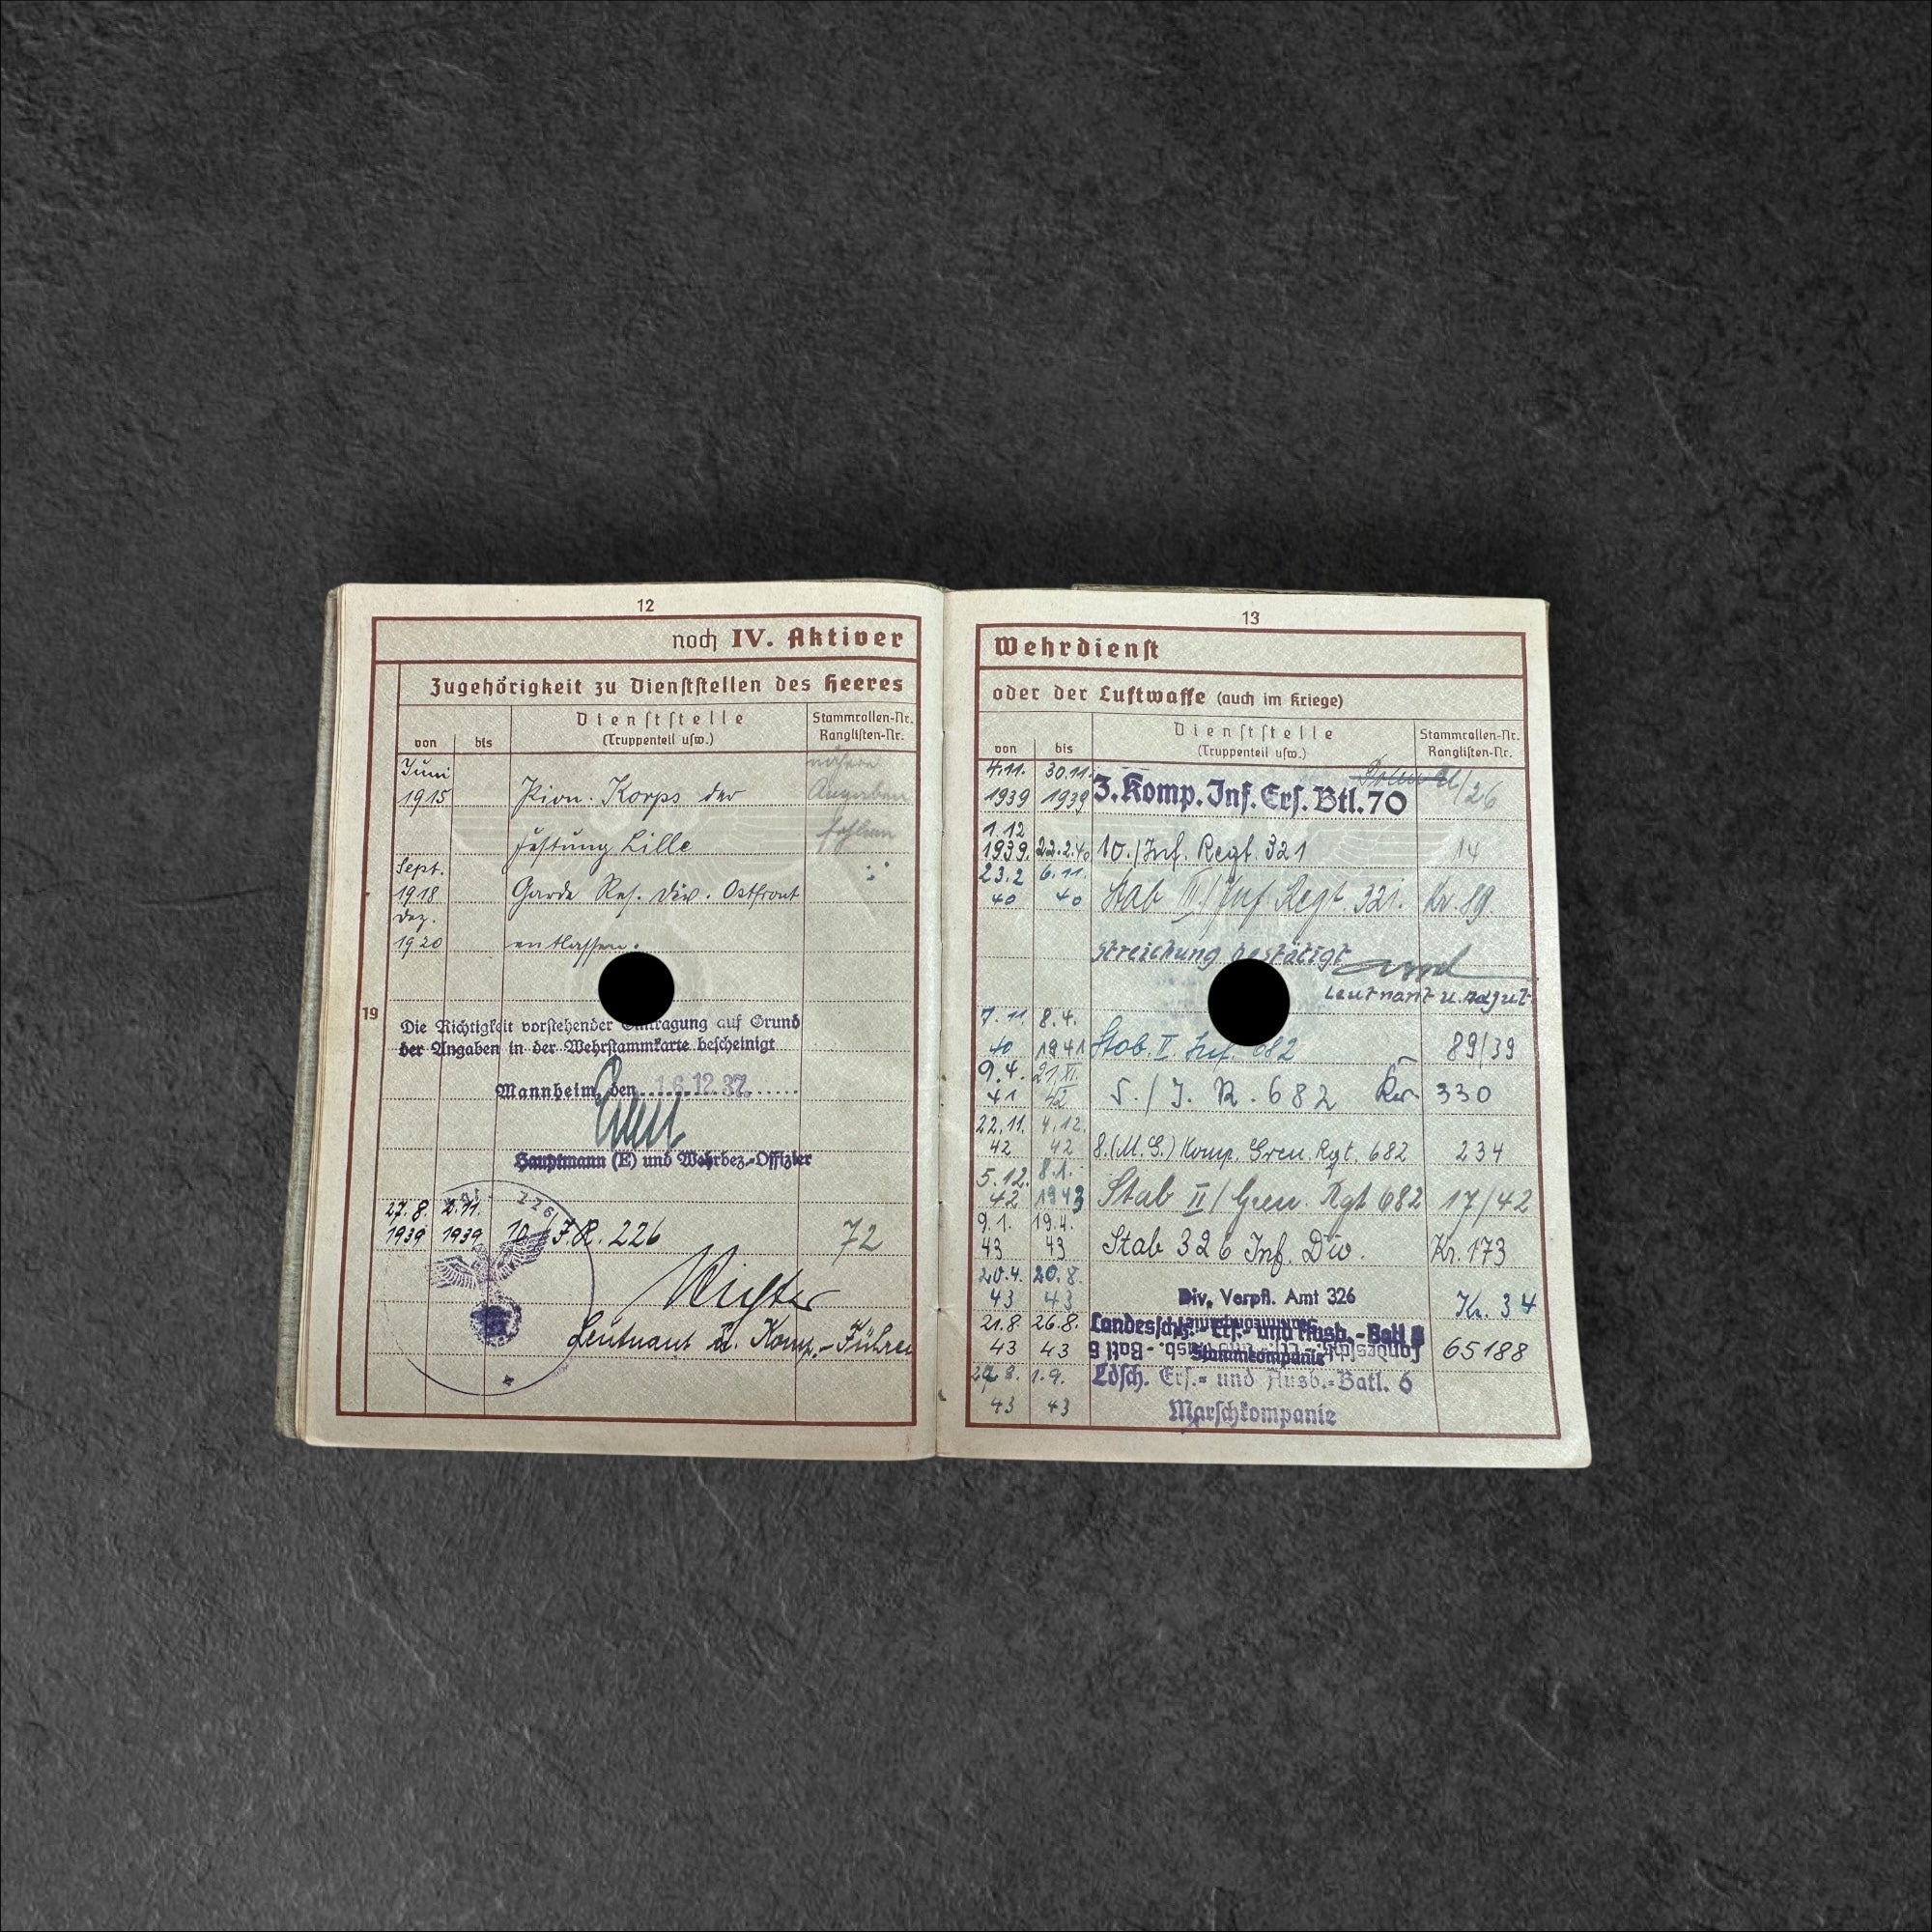 12
noch IV. Aktiver
Zugehörigkeit zu Dienststellen des Heeres
von
bis
Dienststelle
(Truppenteil usw.)
Stammrollen-Nr.
Ranglisten-Nr.
Juni
1915
Pion. Korps der
nähere
Angaben
fehlen
Festung Lille
Sept.
1918
Garde Res. Div. Ostfront
Dez.
1920
entlassen.
19
Die Richtigkeit vorstehender Eintragung auf Grund
der Angaben in der Wehrstammkarte bescheinigt
Mannheim, den 16.12.37.
Hauptmann (E) und Wehrbez.-Offizier
226
27.8.
1939
2.11.
1939
10. J.R. 226
72
Leutnant u. Komp.-Führer
13
Wehrdienst
oder der Luftwaffe (auch im Kriege)
von
bis
Dienststelle
(Truppenteil usw.)
Stammrollen-Nr.
Ranglisten-Nr.
4.11. 30.11.
1939 1939
3. Komp. Inf. Ers. Btl. 70
/26
1.12
1939. 22.2.40
10./Inf. Regt. 321
14
23.2 6.11.
40 40
Stab III./Inf. Regt. 321.
Kr. 89.
Streichung bestätigt
Leutnant u. Adjut.
7.11. 8.4.
40 1941
Stab. II. Inf. 682
89/39
9.4. 21.XI.
41 42
5./J. R. 682
Kr. 330
22.11. 4.12.
42 42
8.(M.G.) Komp. Gren. Rgt. 682
234
5.12. 8.1.
42 1943
Stab II/Gren. Rgt 682
17/42
9.1. 19.4.
43 43
Stab 326 Inf. Div.
Kr. 173
20.4. 20.8.
43 43
Div. Verpfl. Amt 326
Kr. 34
21.8. 26.8.
43 43
Landessch. Ers.- und Ausb.-Batl 6
Stammkompanie
65188
8. 1.9.
43 43
Ldsch. Ers.- und Ausb.-Batl. 6
Marschkompanie